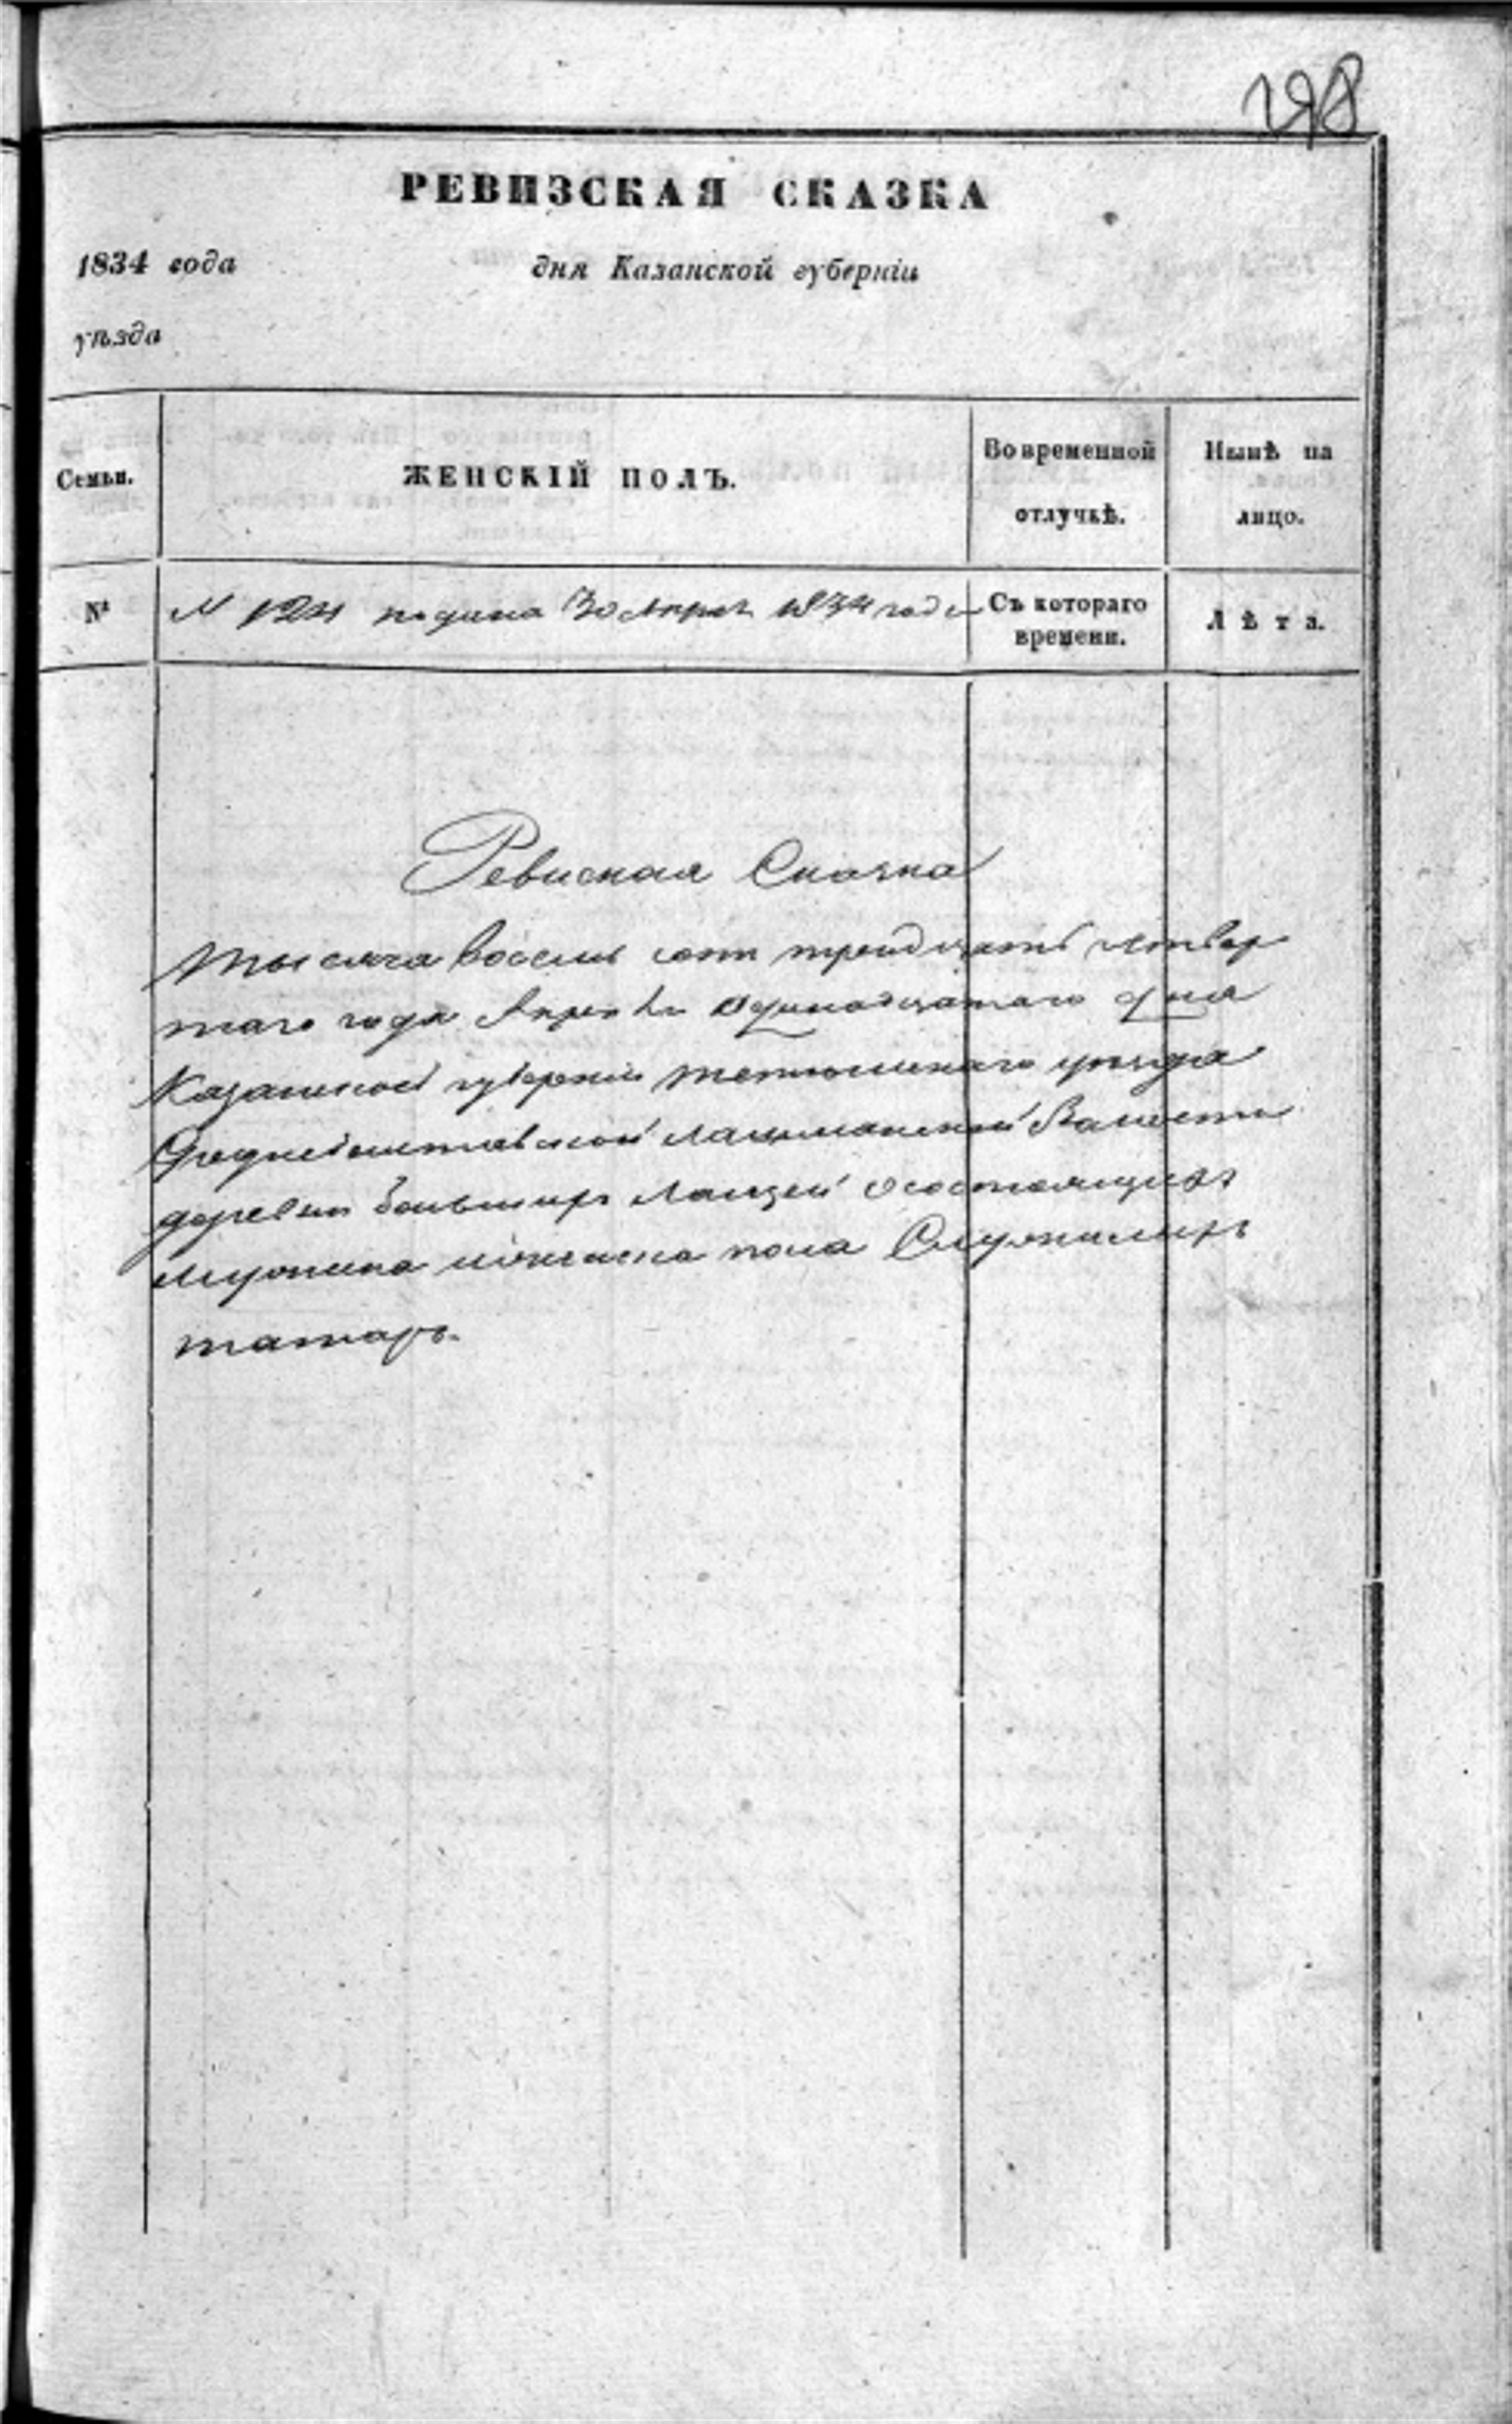 198
РЕВИЗСКАЯ СКАЗКА
1834 года дня Казанской губерніи
уѣзда
Семьи. ЖЕНСКІЙ ПОЛЪ. Во временной отлучкѣ. Нынѣ на лицо.
№ N 124 подана 30 Апреля 1834 года Съ котораго времени. Лѣта.
Ревиская Сказка
тысяча восемь сотъ тридцать четвер
таго года Апреля одинадцатаго дня
Казанской губерніи тетюшскаго уезда
лашманской Волости
деревни большихъ о состоящихъ
Мужеска и женска пола Служилыхъ
татаръ.